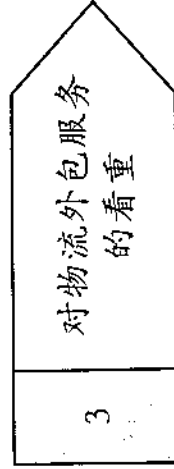 3
对物流外包服务
的看重